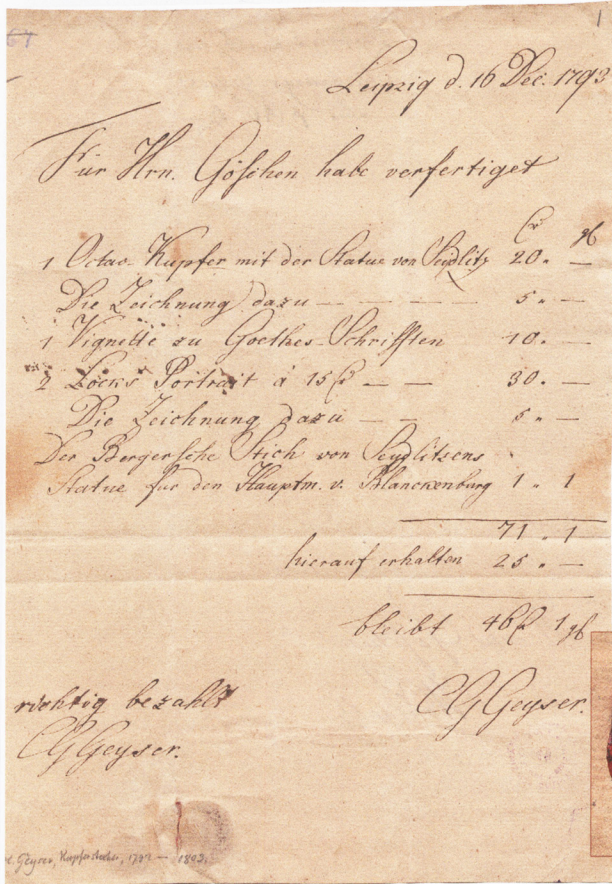 67
1
Leipzig d. 16 Dec. 1793
Für Hrn. Göschen habe verfertiget
rℓ gℓ
1 Octav-Kupfer mit der Statue von Seydlitz 20 „ —
Die Zeichnung dazu — — — — 5 „ —
1 Vignette zu Goethes Schrifften 10 „ —
2 Locks Portrait á 15 rℓ — — 30 „ —
Die Zeichnung dazu — — 5 „ —
Der Bergersche Stich von Seydlitzens
Statue für den Hauptm. v. Blanckenburg 1 „ 1
71 „ 1
hierauf erhalten 25 „ —
bleibt 46 rℓ 1 gℓ
richtig bezahlt
CG Geyser.
CG Geyser.
Geyser, Kupferstecher, 1742 — 1803.